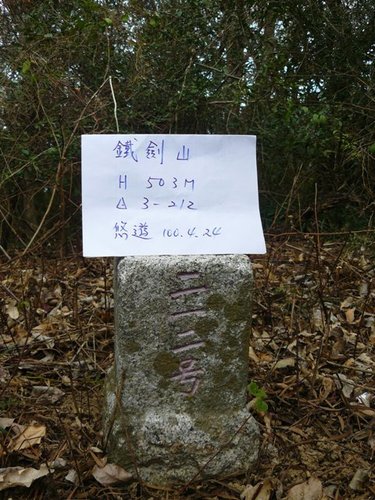 鐵劍山
H 503M
△ 3-212
悠遊 100.4.24
二一二号